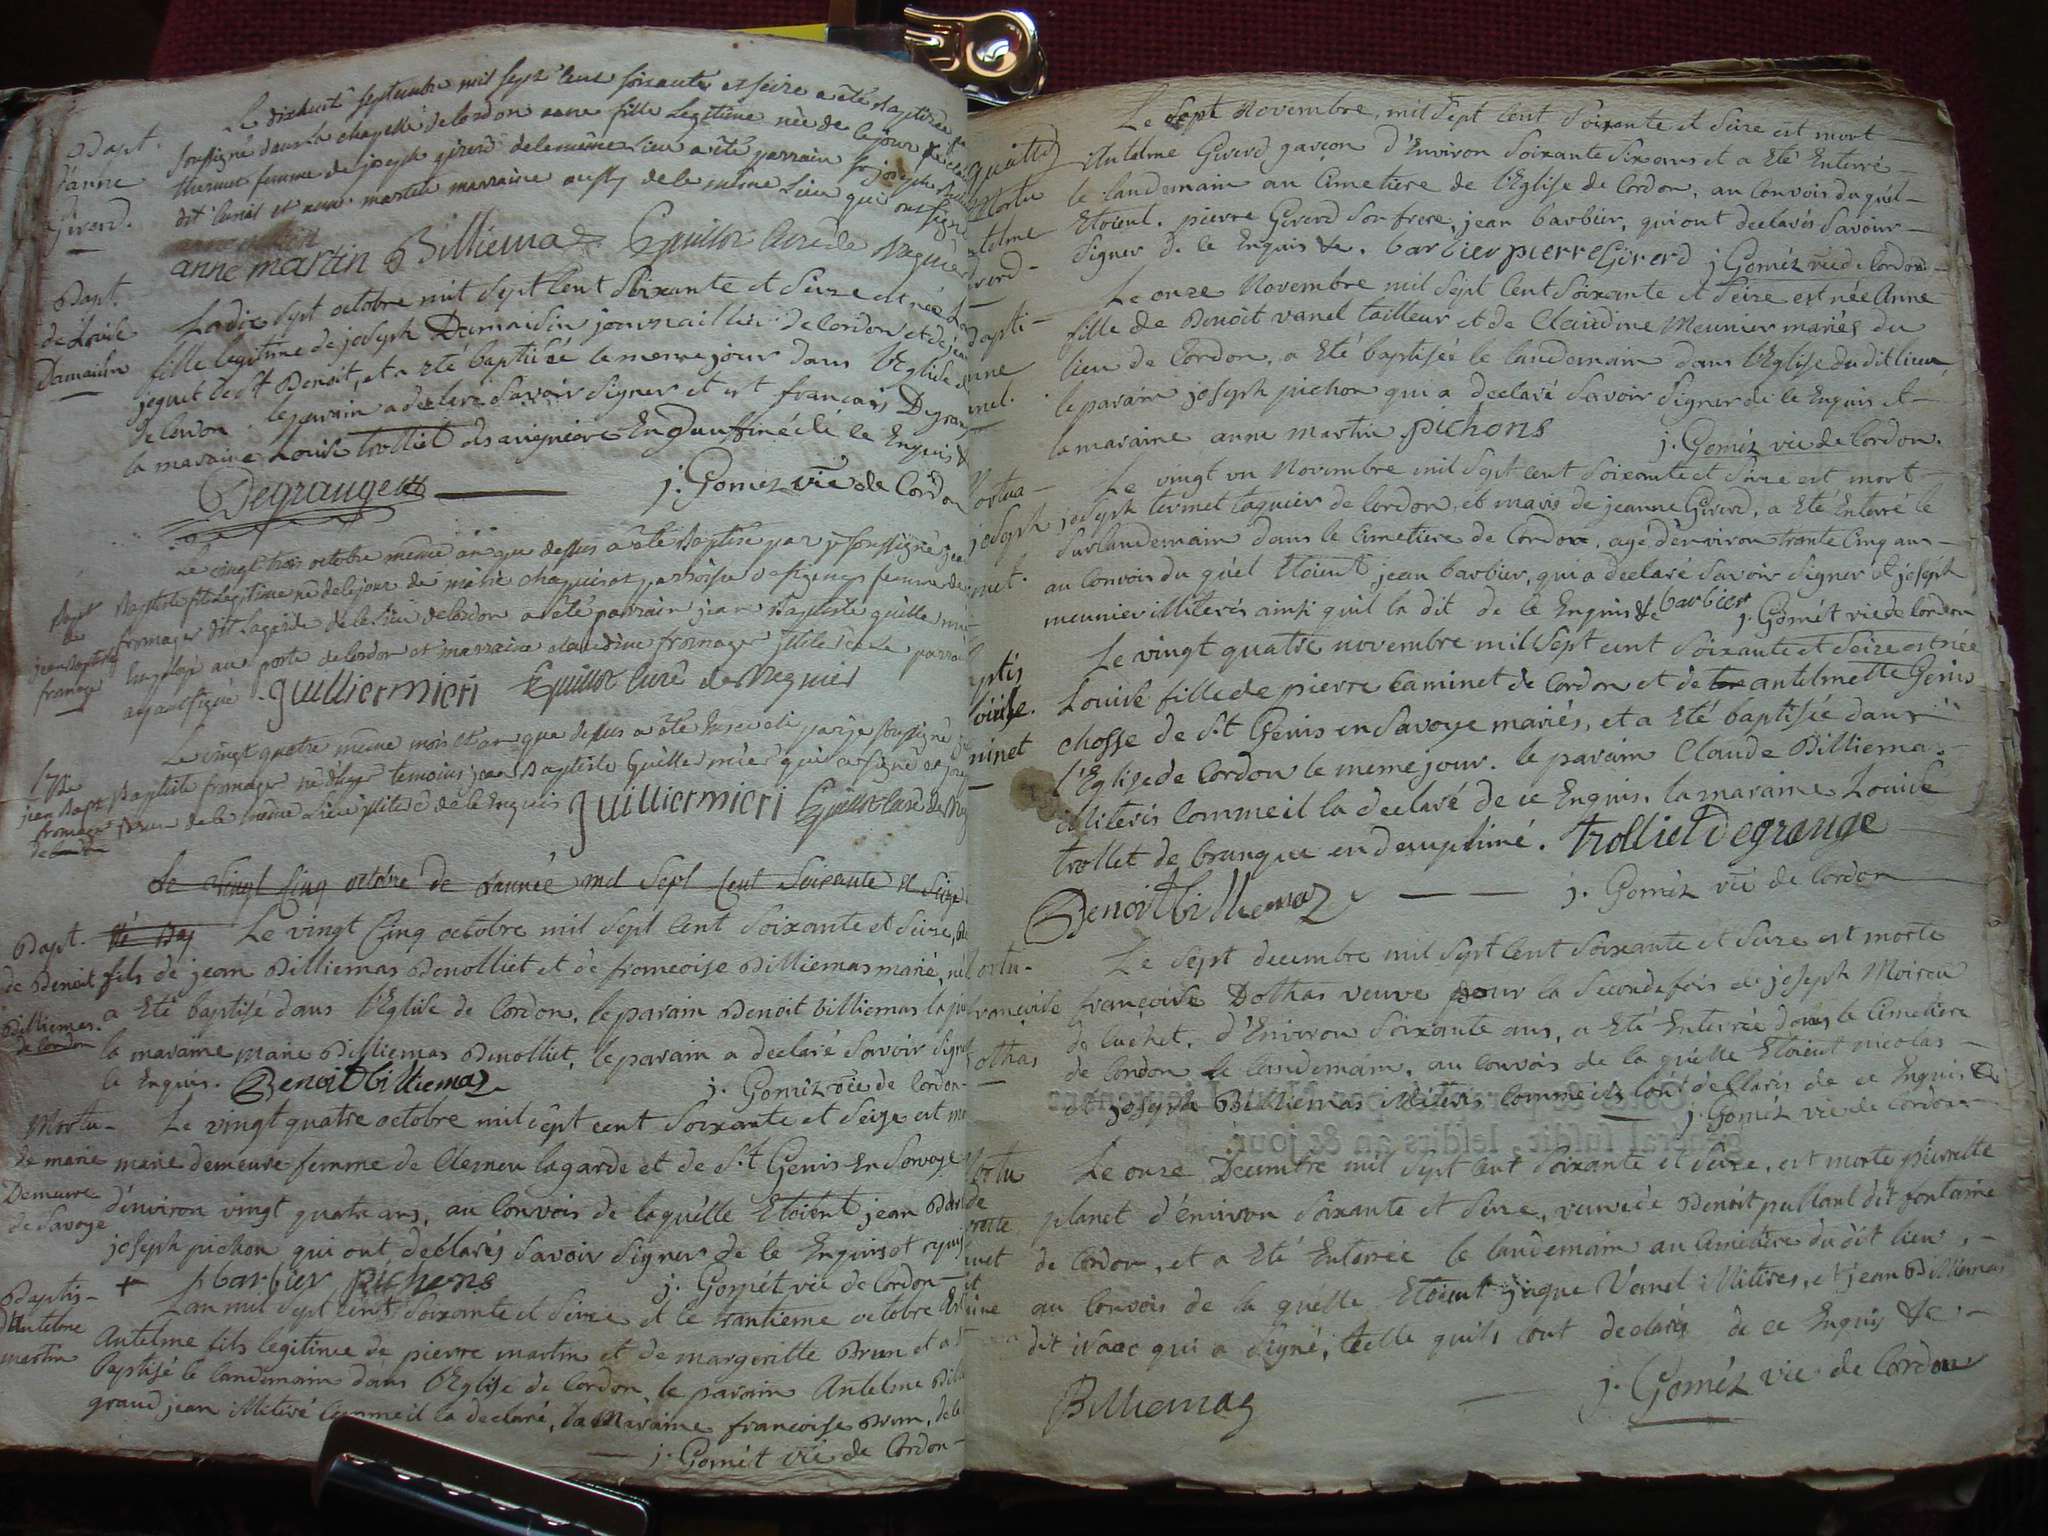 Le dixhuit septembre mil sept cent soixante et seize a été baptisée
Bapt.
soussigné dans la chapelle de cordon anne fille legitime née de le jour
d'anne
thermet femme de joseph girerd de le même lieu a été parrain
Girerd.
et anne martin marraine aussy de le même lieu qui ont signé
anne martin Billiemaz Guillot curé de
Bapt.
Ledix sept octobre mil sept cent soixante et seize est née
de Louise
fille legitime de joseph Damaisin journaillier de Cordon et de
Damaisin
joguet de St Benoit, et a eté baptisée le meme jour dans l'Eglise
de Cordon. le parain a declaré Savoir Signer et est francois Degrange
la maraine Louise trolliet des avignieres En Dauffiné de ce Enquis &
Degrange
j. Goméz vic de Cordon
Le vingt trois octobre même an que dessus a été Baptisé par je soussigné
Bapt
Baptiste fils legitime né de le jour de femme de
de
jean Baptiste
fromager dit lagarde de le lieu de cordon a été parrain jean Baptiste guille
fromager
Employé au porte de cordon et marraine claudine fromager
ayant signé. guilliermieri Guillot curé de
Le vingt quatre même mois et an que dessus a été Enseveli par je soussigné
jean Bapt
Baptiste fromager temoins jean Baptiste Guille qui a signé et
fromager
de le même lieu de le Enquis guilliermieri Guillot curé de
de Cordon
Le vingt cinq octobre de l'année mil sept cent soixante et seize
Bapt. Le vingt Cinq octobre mil sept Cent Soixante et Seize,
de Benoit fils de jean Billiemas Benolliet et de francoise Billiemas marié,
a Eté baptisé dans l'Eglise de Cordon, le parain Benoit billiemas
Billiemas
de Cordon
la maraine marie Billiemas Benolliet, le parain a declaré Savoir Signer
le Enquis. Benoit billiemaz
j. Goméz vic de Cordon
Mortu- Le vingt quatre octobre mil sept cent Soixante et Seize est
de marie marie demeure femme de Clemen lagarde et de St Genis En Savoye
Demeure d'environ vingt quatre ans, au Convois de laquelle Etoient jean
de Savoye
joseph pichon qui ont declarés Savoir Signer de le Enquis et
+ barbier pichons j. Goméz vic de Cordon
Baptis- Lan mil sept cent Soixante et Seize et le trantieme octobre
d'Antelme Antelme fils legitime de pierre martin et de margeritte Brun et a
martin baptisé le landemain dans l'Eglise de Cordon, le parain Antelme
grand jean illitéré comme il la declaré, la Maraine francoise Brun,
j. Goméz vic de Cordon
Le Sept Novembre, mil Sept Cent Soixante et Seize est mort
Antelme Girerd garçon d'Environ Soixante Six ans et a Eté Enterré
Mortu
le landemain au Cimetiere de l'Eglise de Cordon, au Convois duquel
Etoient. pierre Girerd Son frere, jean barbier, qui ont declarés Savoir
Signer de le Enquis &c. barbier pierre Girerd j Goméz vic de Cordon
Le onze Novembre mil sept Cent Soixante et Seize est née Anne
fille de Benoit vanel tailleur et de Claudine Meunier mariés du
lieu de Cordon, a Eté baptisée le landemain dans l'Eglise du dit lieu
le parain joseph pichon qui a declaré Savoir Signer de le Enquis &
la maraine anne martin pichons j. Goméz vic de Cordon.
Le vingt un Novembre mil sept cent Soixante et Seize est mort
joseph joseph termet taquier de Cordon, et maris de jeanne Girerd, a Eté Enterré le
Surlandemain dans le Cimetiere de Cordon, agé d'environ trante Cinq ans
au Convois du quel Etoient jean barbier, qui a declaré Savoir Signer et joseph
meunier illiterés ainsi quil la dit de le Enquis &c barbier j. Goméz vic de Cordon
Le vingt quatre novembre mil Sept cent Soixante et Seize est née
Louise fille de pierre Caminet de Cordon et de antelmette Genis
chosse de St Genis en Savoye mariés, et a Eté baptisée dans
l'Eglise de Cordon le meme jour. le parain Claude Billiema.
illiterés Comme il la declaré de ce Enquis. la maraine Louise
trollet de brangue en dauphiné. Trolliet Degrange
Benoit billiemaz j. Goméz vic de Cordon
Le Sept decembre mil Sept Cent Soixante et Seize est morte
françoise Dothas veuve pour la Seconde fois de joseph Moiroud
de Cuchet, d'Environ Soixante ans, a Eté Enterrée dans le Cimetiere
de Cordon le landemain, au Convois de la quelle Etoient nicolas
et joseph Billiemas illiterés comme ils lont declarés de ce Enquis &c
j. Goméz vic de Cordon
Mortu Le onze Decembre mil sept Cent Soixante et Seize, est morte pierrette
planet d'environ Soixante et Seize, veuve de Benoit pullant dit fontaine
de Cordon, et a Eté Enterrée le landemain au Cimetiere du dit lieu,
au Convois de la quelle Etoient jaque Vanel illitéres, et jean Billiemas
dit isaac qui a Signé, telle quils lont declarés de ce Enquis &c
Billiemaz j. Goméz vic de Cordon